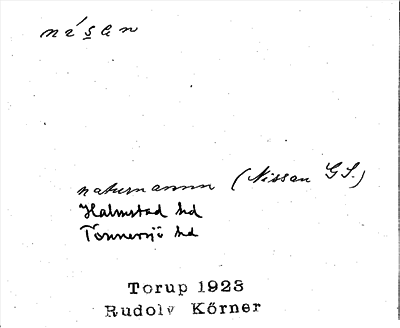 naturnamn (Nissan GS.)
Halmstad hd
Tönnersjö hd
Torup 1923
Rudolv Körner